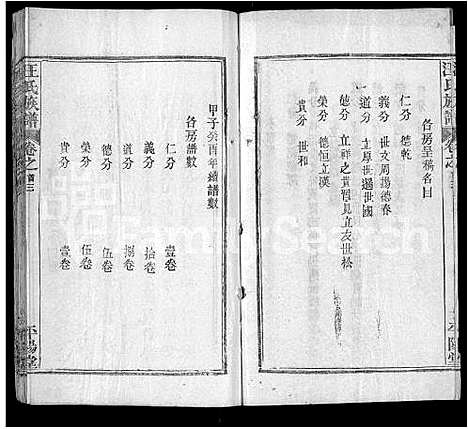 汪氏族譜
各房呈稿名目
仁分 德乾
義分 世文周揚德春
道分 立厚世邁世國
德分 立祥之貫冒見立友世松
榮分 德恒立漢
貴分 世和
平陽堂
甲子癸酉年續譜數
各房譜數
仁分 壹卷
義分 拾卷
道分 捌卷
德分 伍卷
榮分 伍卷
貴分 壹卷
汪氏族譜
卷之首三
平陽堂